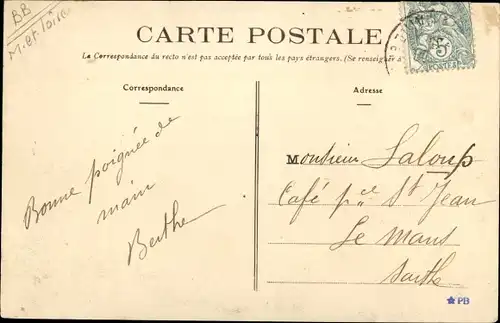 BB
M.et Loire
CARTE POSTALE
La Correspondance du recto n'est pas acceptée par tous les pays étrangers. (Se renseigner
Correspondance
Adresse
Bonne poignée de
main
Berthe
Monsieur Saloup
Café pce St Jean
Le Mans
Sarthe
5
PB